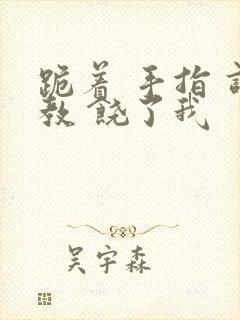 跪着 手指 
教 饶了我
吴宇森